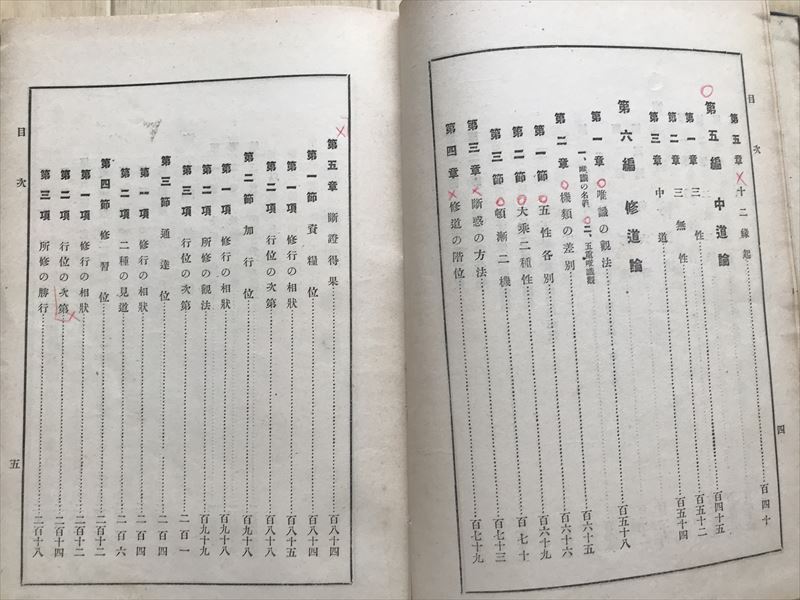 目次
四
第五章 十二緣起……百四十
第五編 中道論……百四十五
第一章 三性……百五十二
第二章 三無性……百五十四
第三章 中道
第六編 修道論……百五十八
第一章 唯識の觀法……百六十五
一、唯識の名稱 二、五重唯識觀
第二章 機類の差別……百六十六
第一節 五性各別……百六十九
第二節 大乘二種性……百七十
第三節 頓漸二機……百七十三
第三章 斷惑の方法
第四章 修道の階位……百七十九
第五章 斷證得果……百八十四
第一節 資糧位……百八十四
第一項 修行の相狀……百八十五
第二項 行位の次第……百九十八
第二節 加行位……百九十八
第一項 修行の相狀……百九十八
第二項 所修の觀法……百九十九
第三項 行位の次第……二百一
第三節 通達位……二百四
第一項 修行の相狀……二百四
第二項 二種の見道……二百六
第四節 修習位……二百十二
第一項 修行の相狀……二百十二
第二項 行位の次第……二百十四
第三項 所修の勝行……二百十八
目次
五